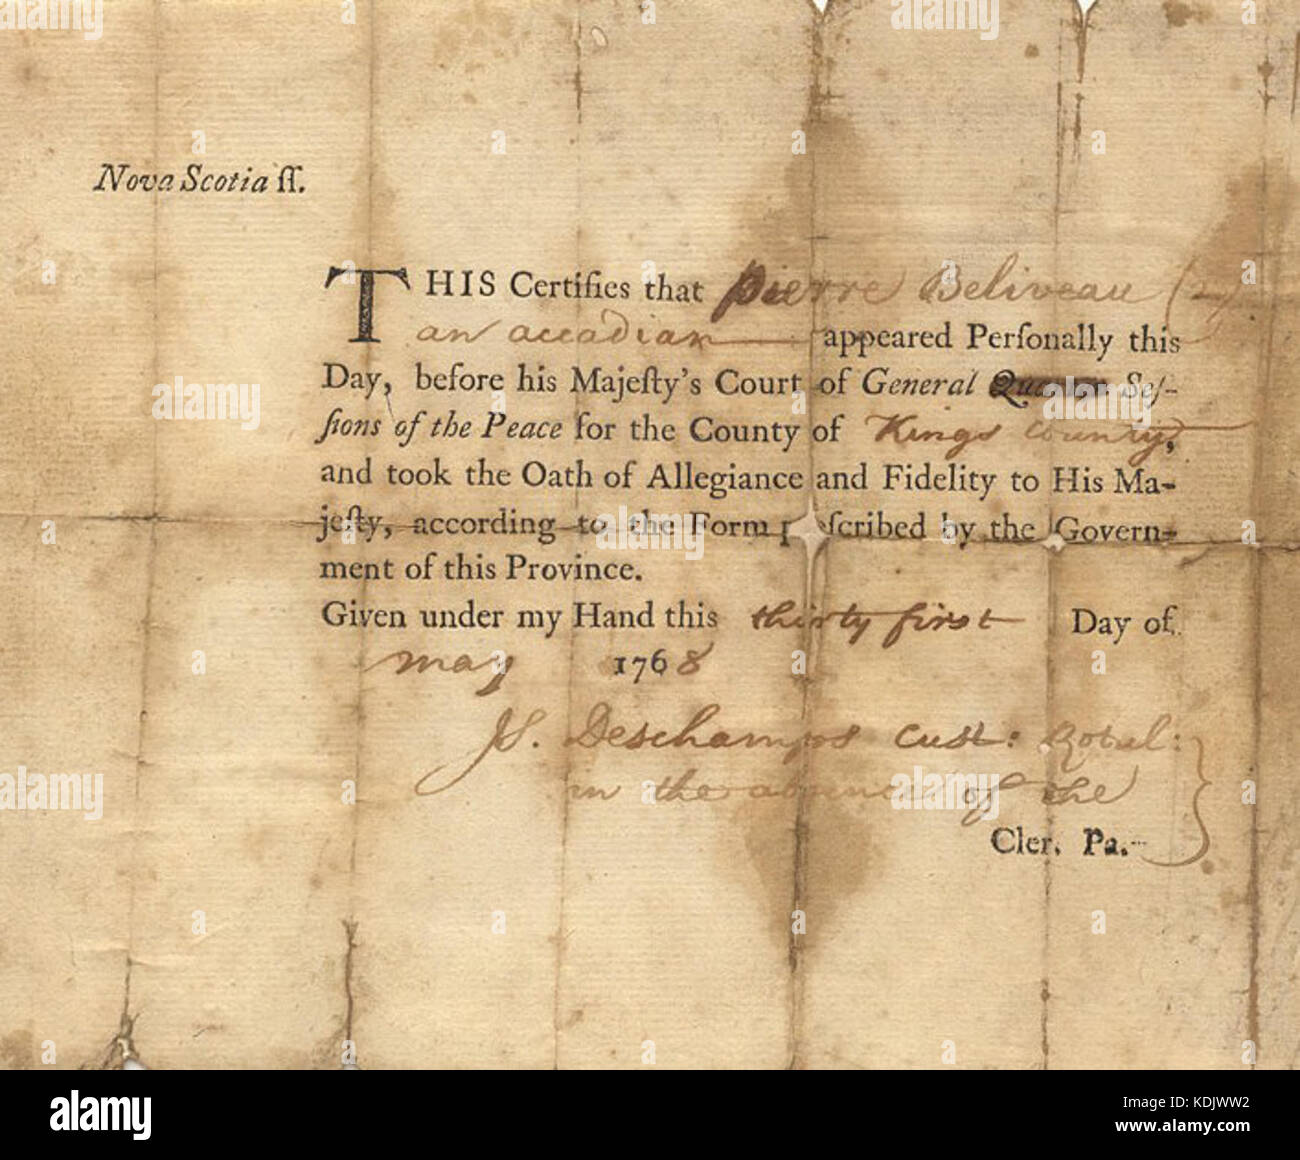 Nova Scotia ſſ.
THIS Certifies that Pierre Beliveau
an accadian appeared Perſonally this
Day, before his Majeſty's Court of General Quarter Seſ-
ſions of the Peace for the County of Kings County,
and took the Oath of Allegiance and Fidelity to His Ma-
jeſty, according to the Form preſcribed by the Govern-
ment of this Province.
Given under my Hand this thirty first Day of
may 1768
JS. Deschamps Cust: Rotul:
in the absence of the
Cler. Pa.
alamy
Image ID: KDJWW2
www.alamy.com